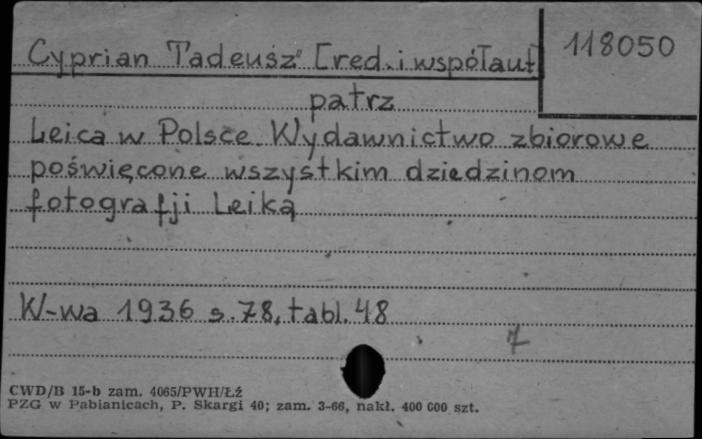 Cyprian Tadeusz [red. i współaut]
118050
patrz
Leica w Polsce. Wydawnictwo zbiorowe
poświęcone wszystkim dziedzinom
fotografji Leiką
W-wa 1936 s. 78, tabl. 48
7
CWD/B 15-b zam. 4065/PWH/Łź
PZG w Pabianicach, P. Skargi 40; zam. 3-66, nakł. 400 000 szt.